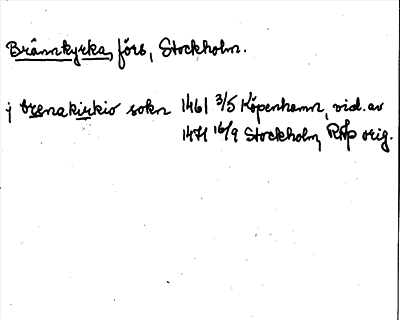 Brännkyrka, förs, Stockholm.
j brenakirkio sokn 1461 3/5 Köpenhamn, vid. av
1471 16/9 Stockholm, RAp orig.